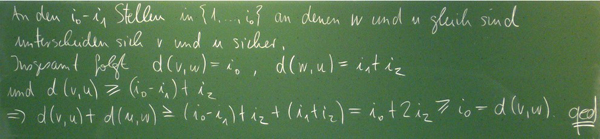 An den i₀-i₁ Stellen in {1...,i₀} an denen w und u gleich sind
unterscheiden sich v und u sicher.
Insgesamt folgt d(v,w) = i₀ , d(w,u) = i₁+i₂
und d(v,u) ≥ (i₀-i₁) + i₂
⇒ d(v,u) + d(u,w) ≥ (i₀-i₁) + i₂ + (i₁+i₂) = i₀ + 2i₂ ≥ i₀ = d(v,w). qed